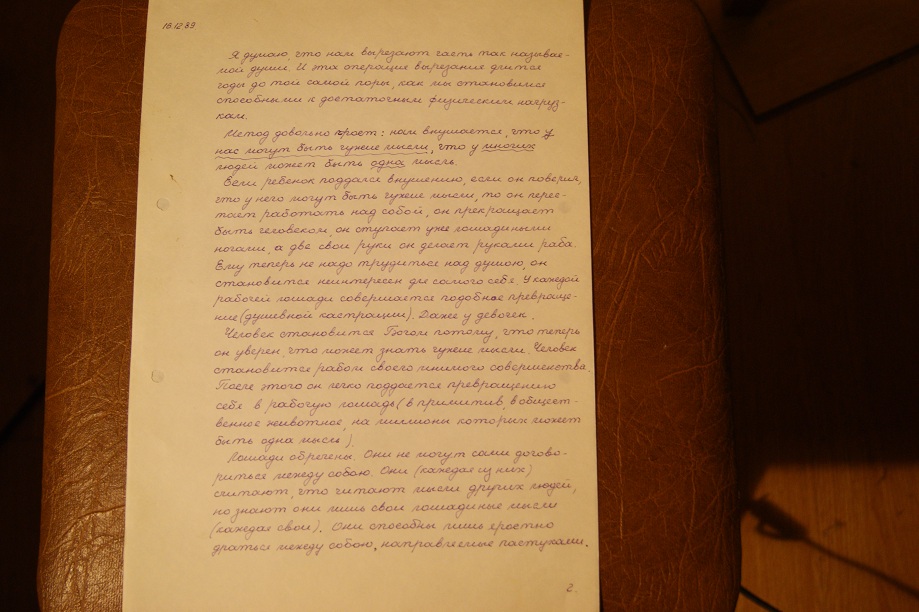 16.12.89
Я думаю, что нам вырезают часть так называе-
мой души. И эта операция вырезания длится
годы до той самой поры, как мы становимся
способными к достаточным физическим нагруз-
кам.
Метод довольно прост: нам внушается, что у
нас могут быть чужие мысли, что у многих
людей может быть одна мысль.
Если ребенок поддался внушению, если он поверил,
что у него могут быть чужие мысли, то он перес-
тает работать над собой, он прекращает
быть человеком, он ступает уже лошадиными
ногами, а две свои руки он делает руками раба.
Ему теперь не надо трудиться над душою, он
становится неинтересен для самого себя. У каждой
рабочей лошади совершается подобное превраще-
ние (душевной кастрации). Даже у девочек.
Человек становится Богом потому, что теперь
он уверен, что может знать чужие мысли. Человек
становится рабом своего мнимого совершенства.
После этого он легко поддается превращению
себя в рабочую лошадь (в примитив, в общест-
венное животное, на миллионы которых может
быть одна мысль).
Лошади обречены. Они не могут сами догово-
риться между собою. Они (каждая из них)
считают, что читают мысли других людей,
но знают они лишь свои лошадиные мысли
(каждая свои). Они способны лишь яростно
драться между собою, направляемые пастухами.
2.